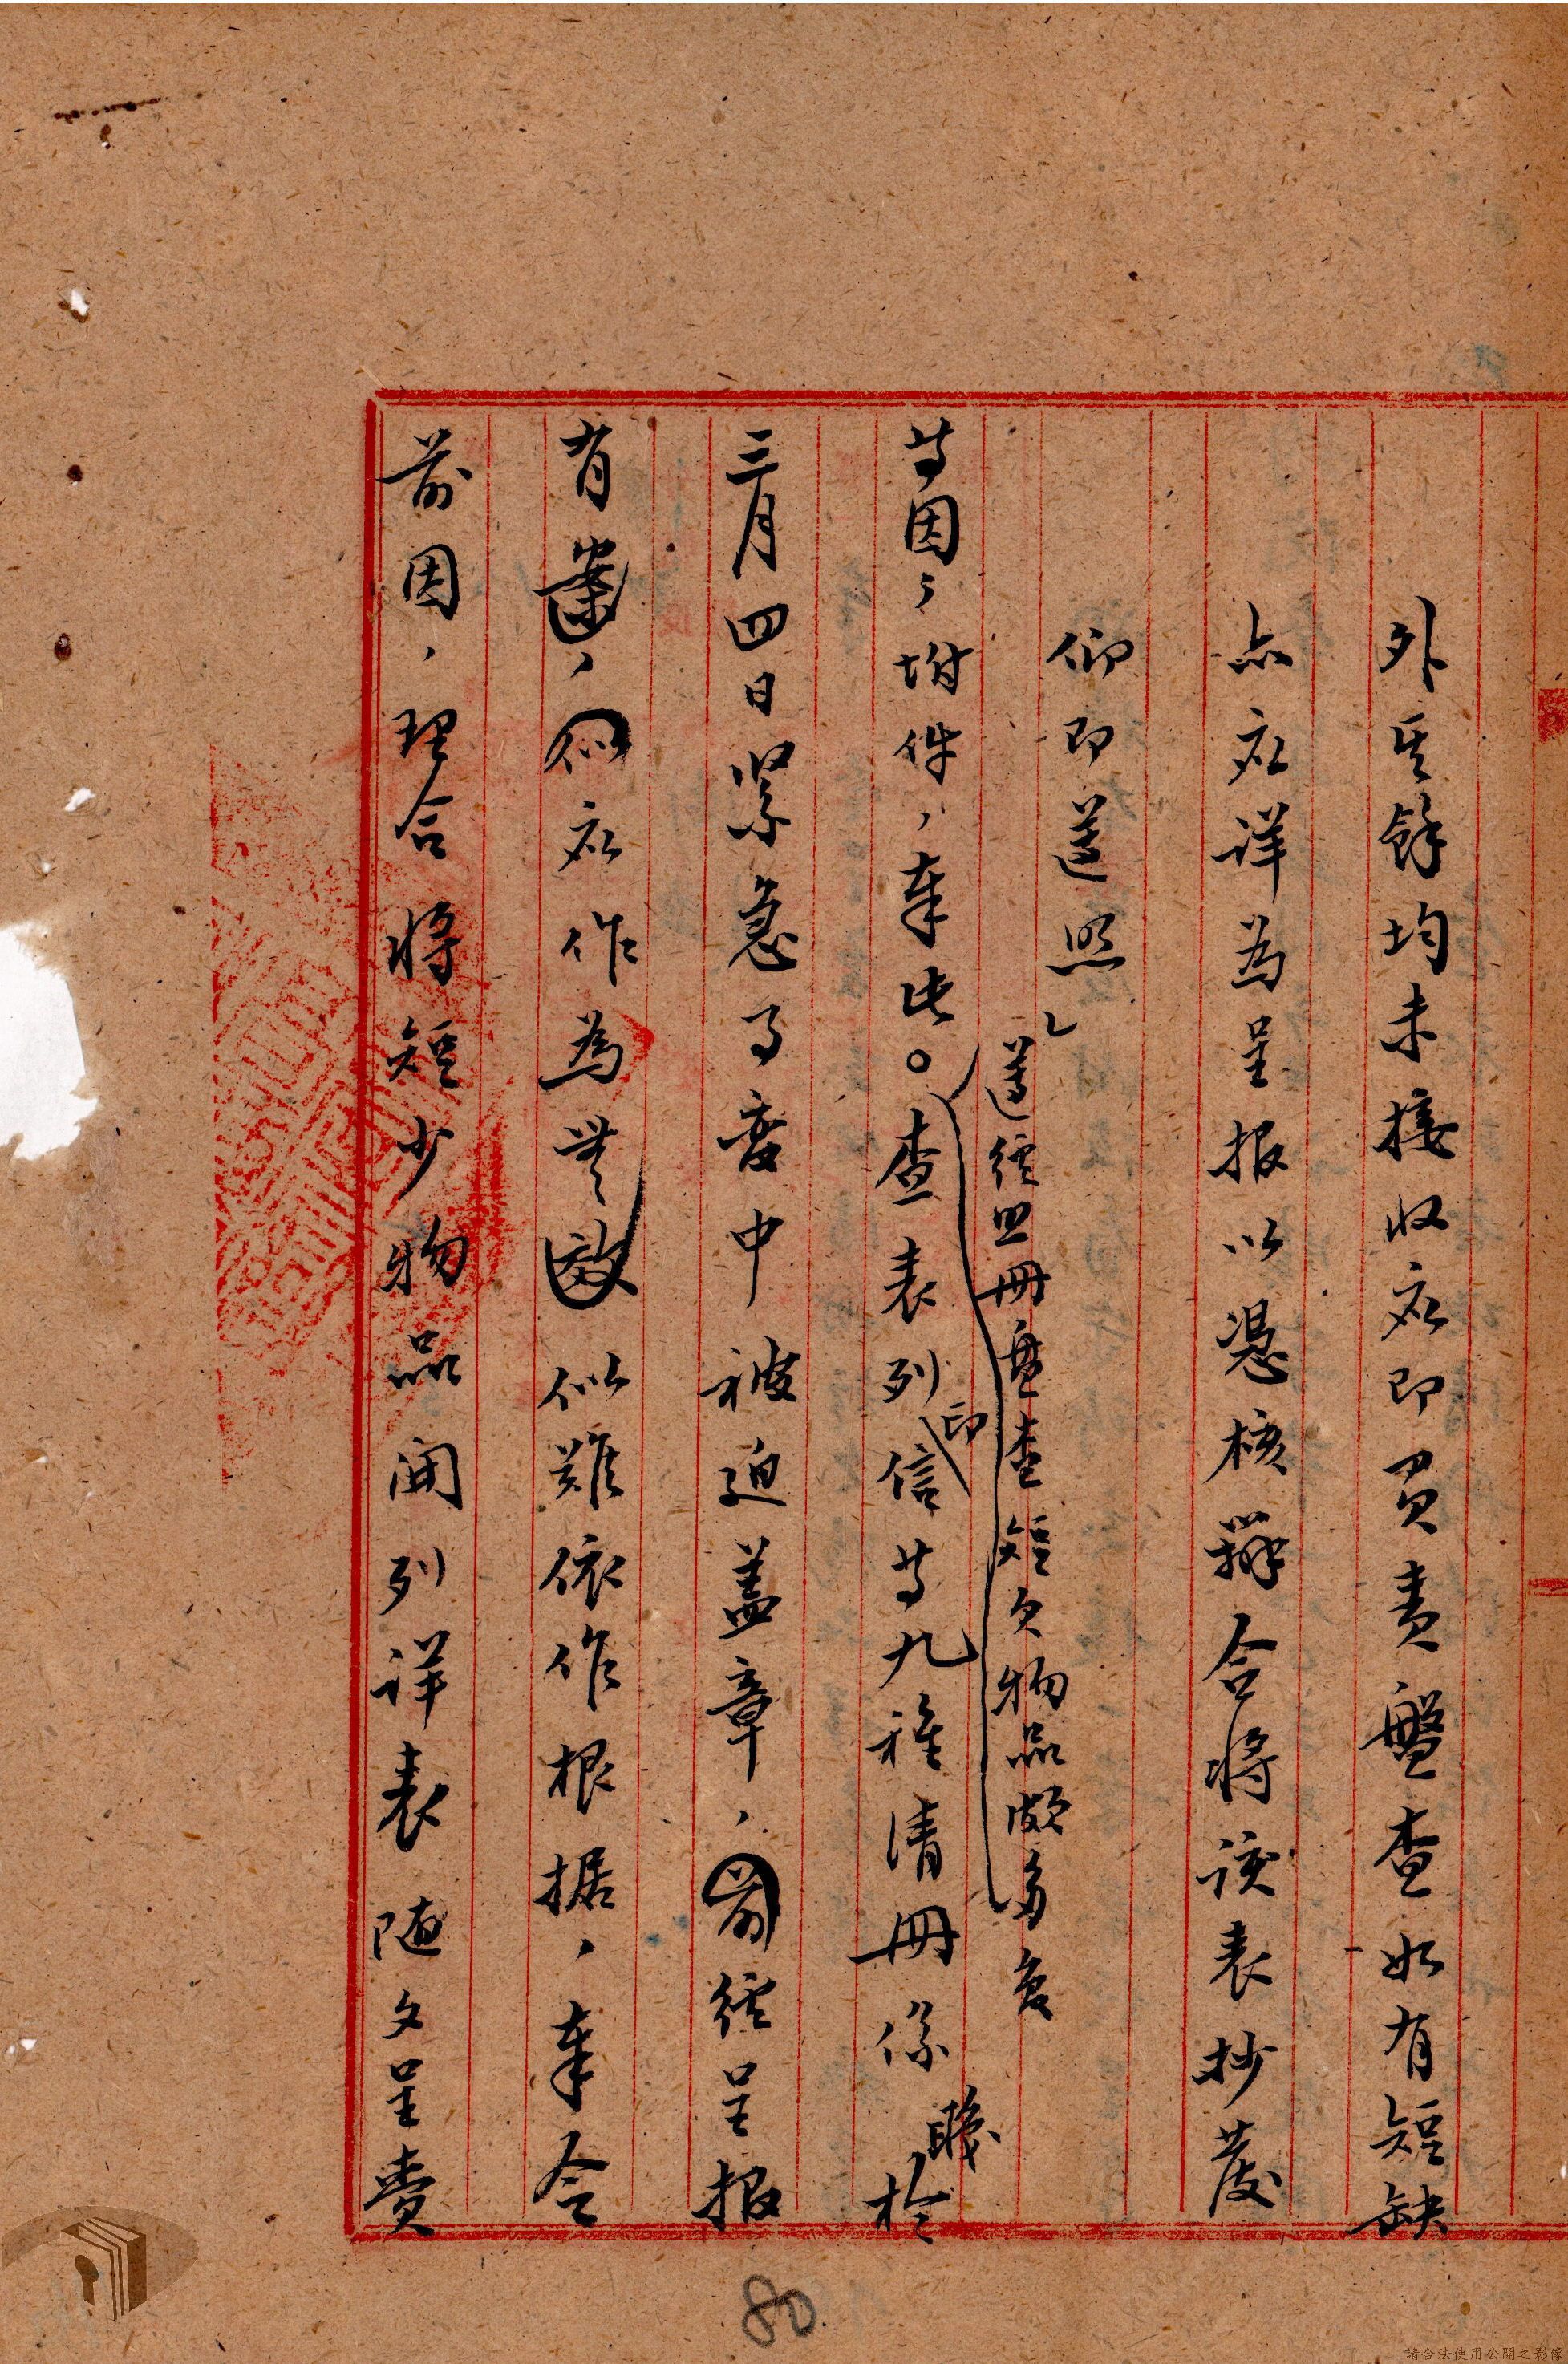 外其餘均未接收应即負責盤查如有短缺
亦应详為呈报以憑核辦合將该表抄发
仰即遵照」
遵經照冊盤查短欠物品頗多負
等因，坿件，奉此。查表列印信等九種清冊係職於
三月四日緊急事变中被迫盖章，前經呈报
有案，似应作為無效似難依作根据，奉令
前因，理合將短少物品開列详表随文呈賫
80
請合法使用公開之影像